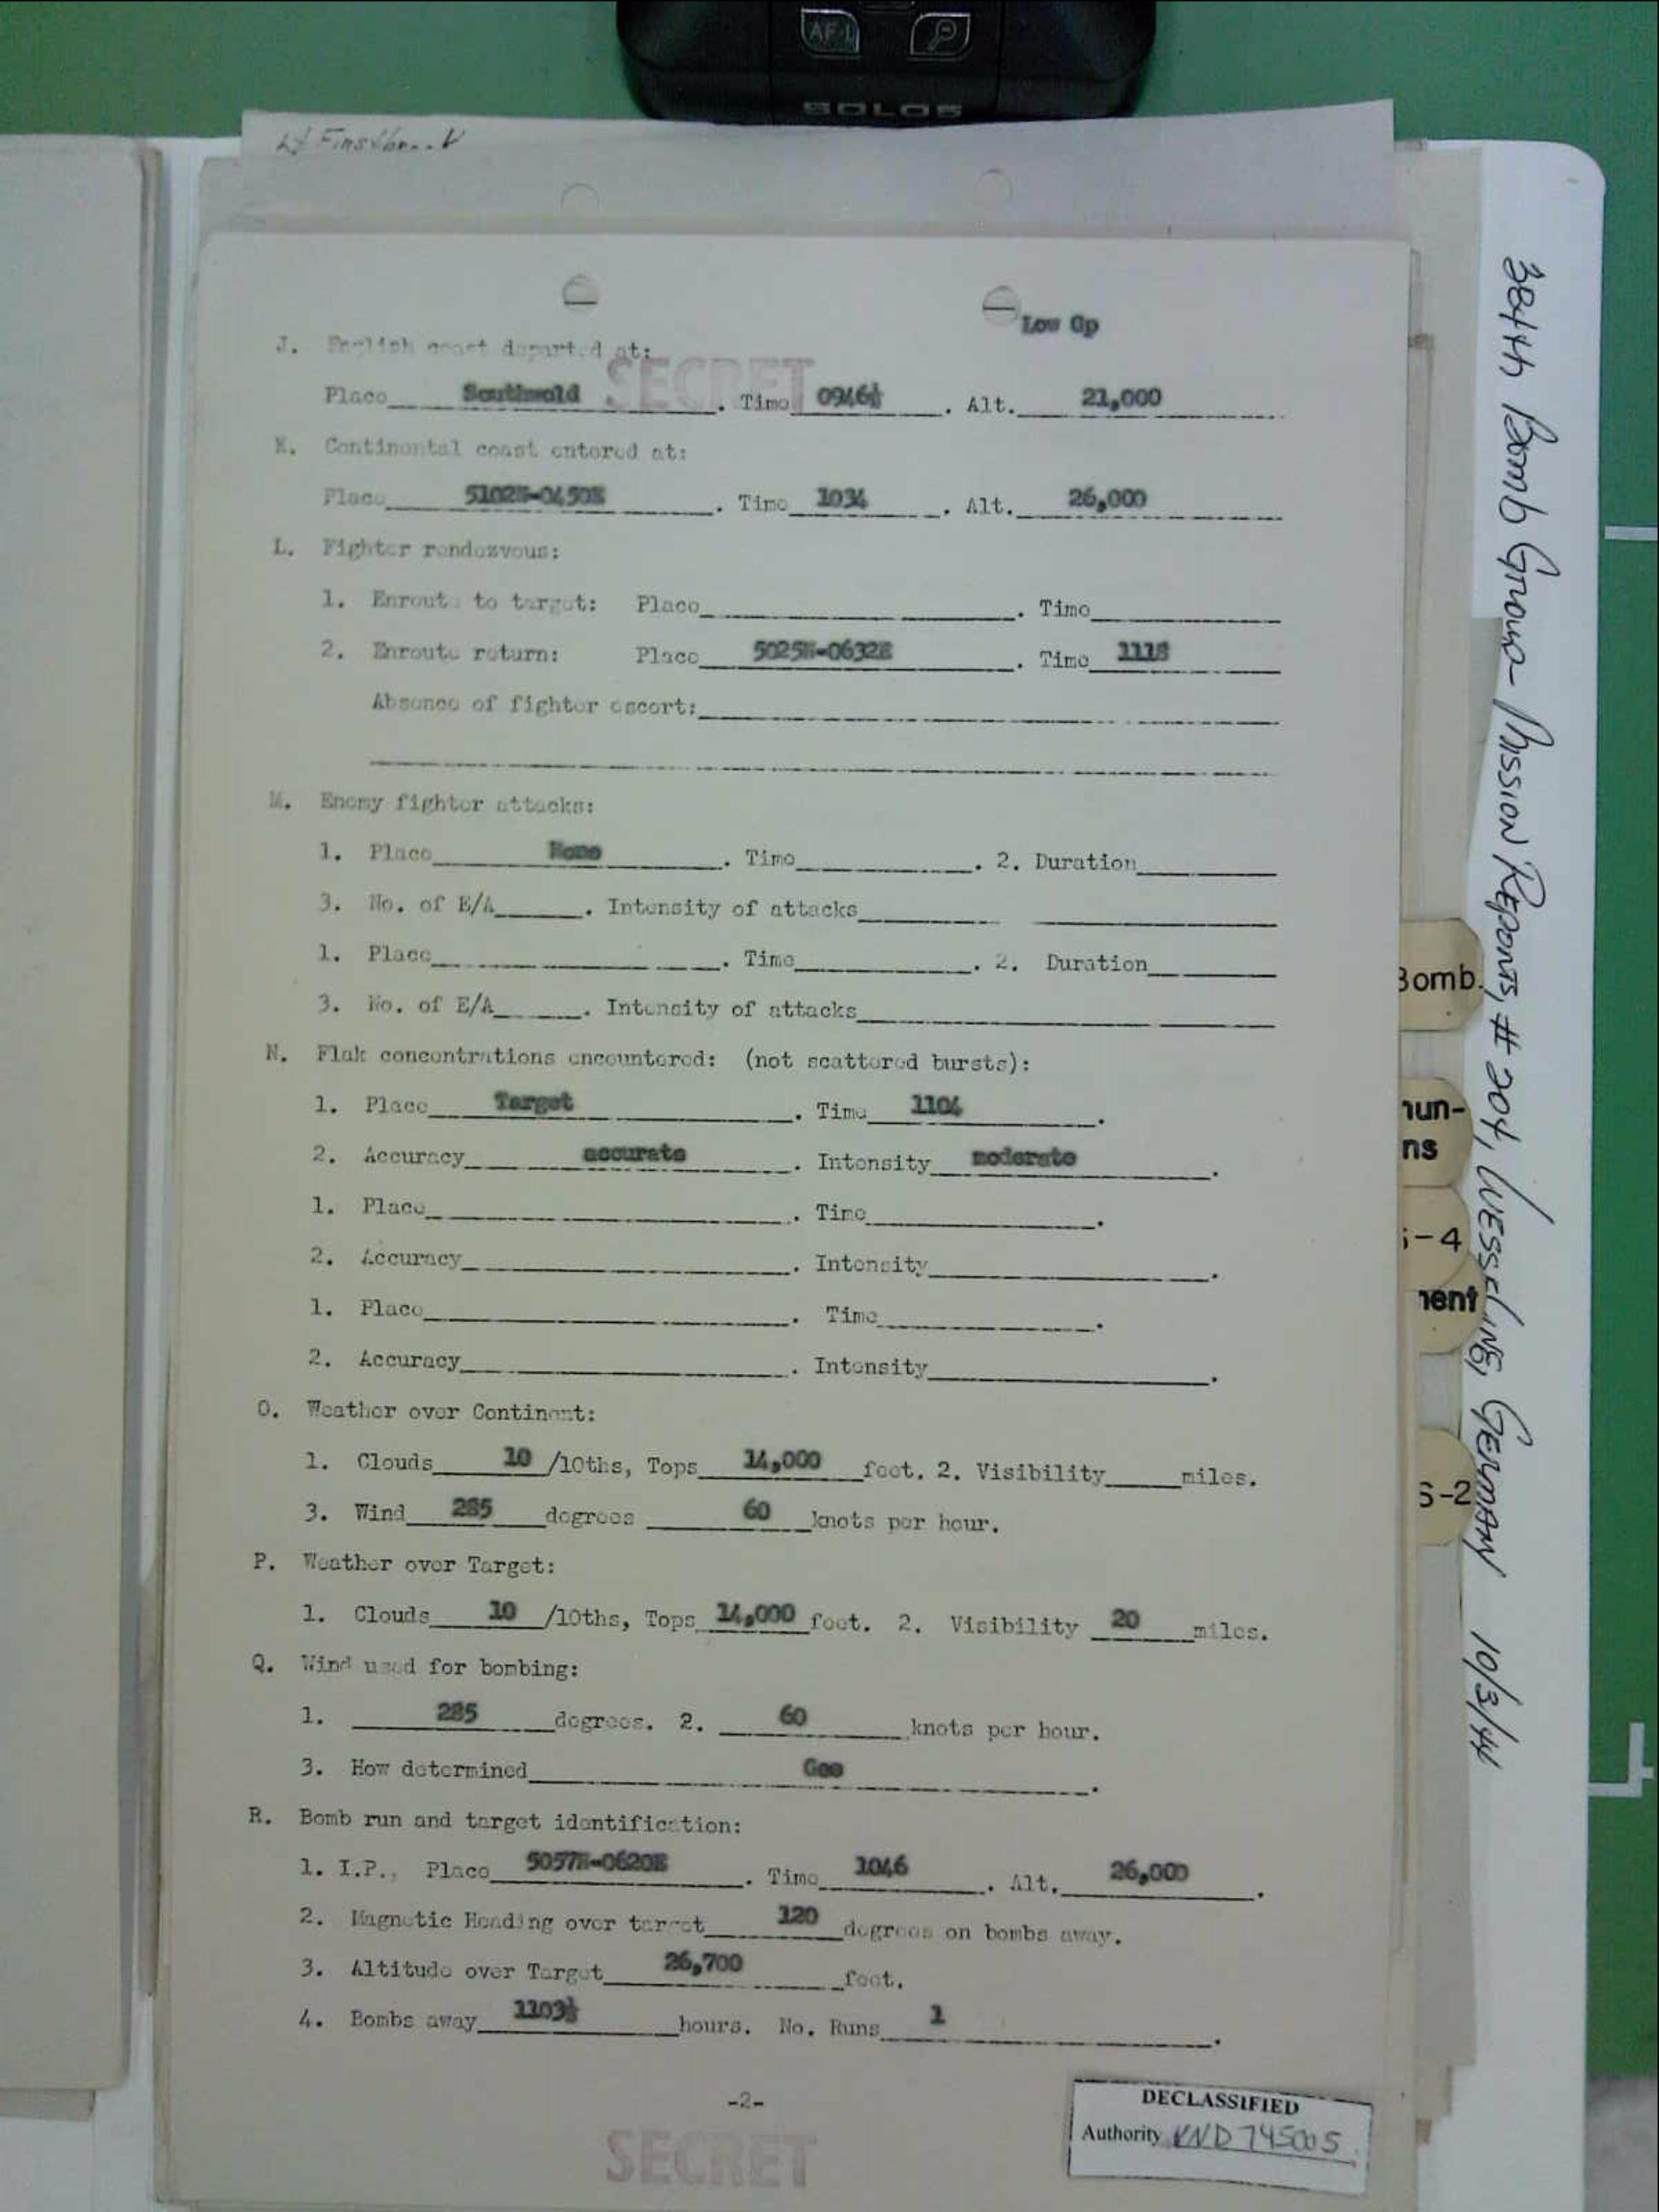 AF-L
SOLOS
Low Gp
SECRET
J. English coast departed at:
Place Southwold . Time 0946½ . Alt. 21,000
K. Continental coast entered at:
Place 5102N-0450E . Time 1034 . Alt. 26,000
L. Fighter rendezvous:
1. Enroute to target: Place . Time
2. Enroute return: Place 5025N-0632E . Time 1118
Absence of fighter escort:
M. Enemy fighter attacks:
1. Place None . Time . 2. Duration
3. No. of E/A . Intensity of attacks
1. Place . Time . 2. Duration
3. No. of E/A . Intensity of attacks
N. Flak concentrations encountered: (not scattered bursts):
1. Place Target . Time 1104 .
2. Accuracy accurate . Intensity moderate .
1. Place . Time .
2. Accuracy . Intensity .
1. Place . Time .
2. Accuracy . Intensity .
O. Weather over Continent:
1. Clouds 10 /10ths, Tops 14,000 feet. 2. Visibility miles.
3. Wind 285 degrees 60 knots per hour.
P. Weather over Target:
1. Clouds 10 /10ths, Tops 14,000 feet. 2. Visibility 20 miles.
Q. Wind used for bombing:
1. 285 degrees. 2. 60 knots per hour.
3. How determined Gee .
R. Bomb run and target identification:
1. I.P., Place 5057N-0620E . Time 1046 . Alt. 26,000 .
2. Magnetic Heading over target 120 degrees on bombs away.
3. Altitude over Target 26,700 feet.
4. Bombs away 1103½ hours. No. Runs 1 .
-2-
SECRET
DECLASSIFIED
Authority NND 745005
384th Bomb Group - Mission Reports, # 204, WESSELING, GERMANY 10/3/44
Bomb.
mun-
ns
S-4
ment
S-2